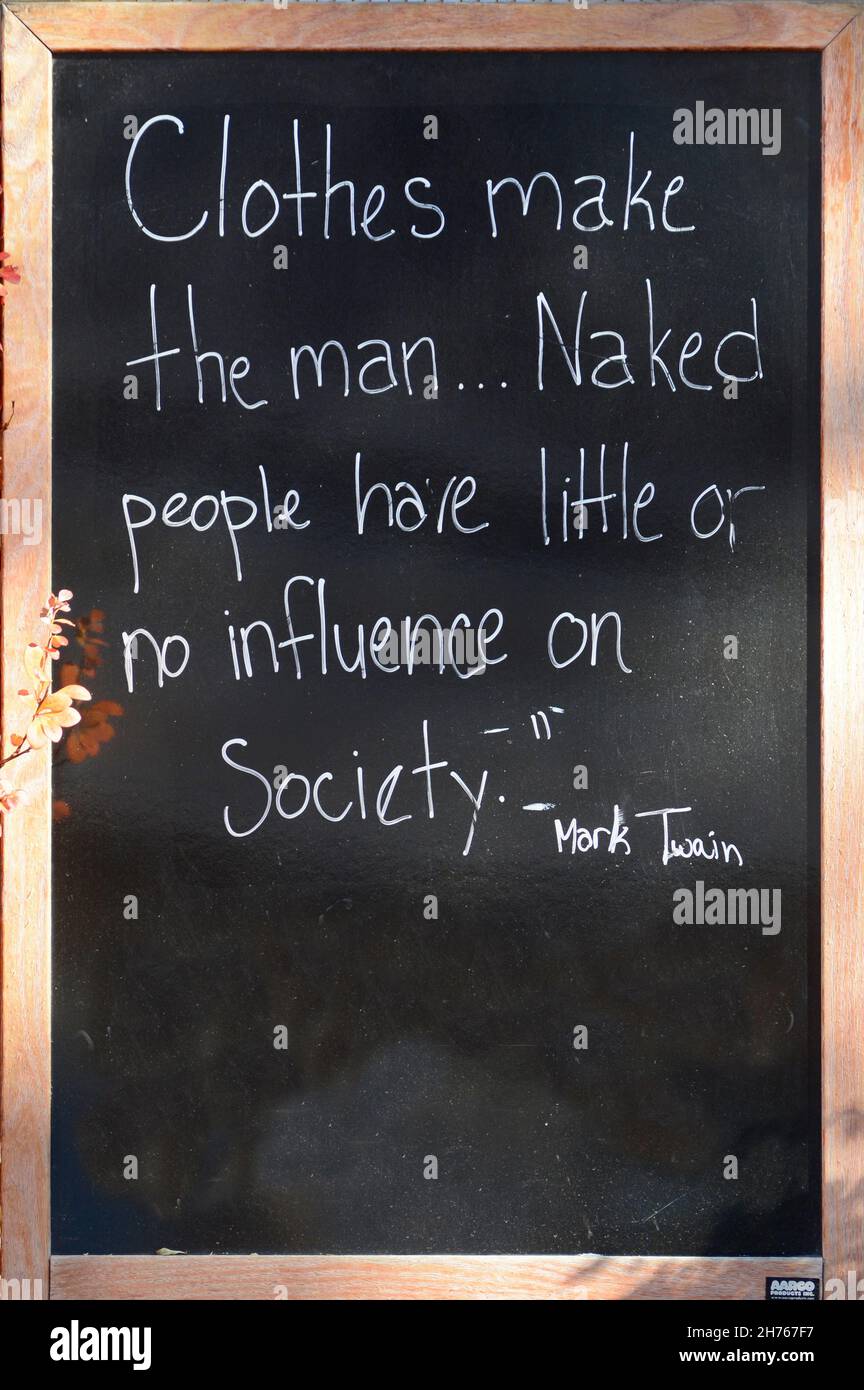 Clothes make
the man... Naked
people have little or
no influence on
Society."
-Mark Twain
alamy
alamy
AARCO
PRODUCTS INC.
alamy
Image ID: 2H767F7
www.alamy.com